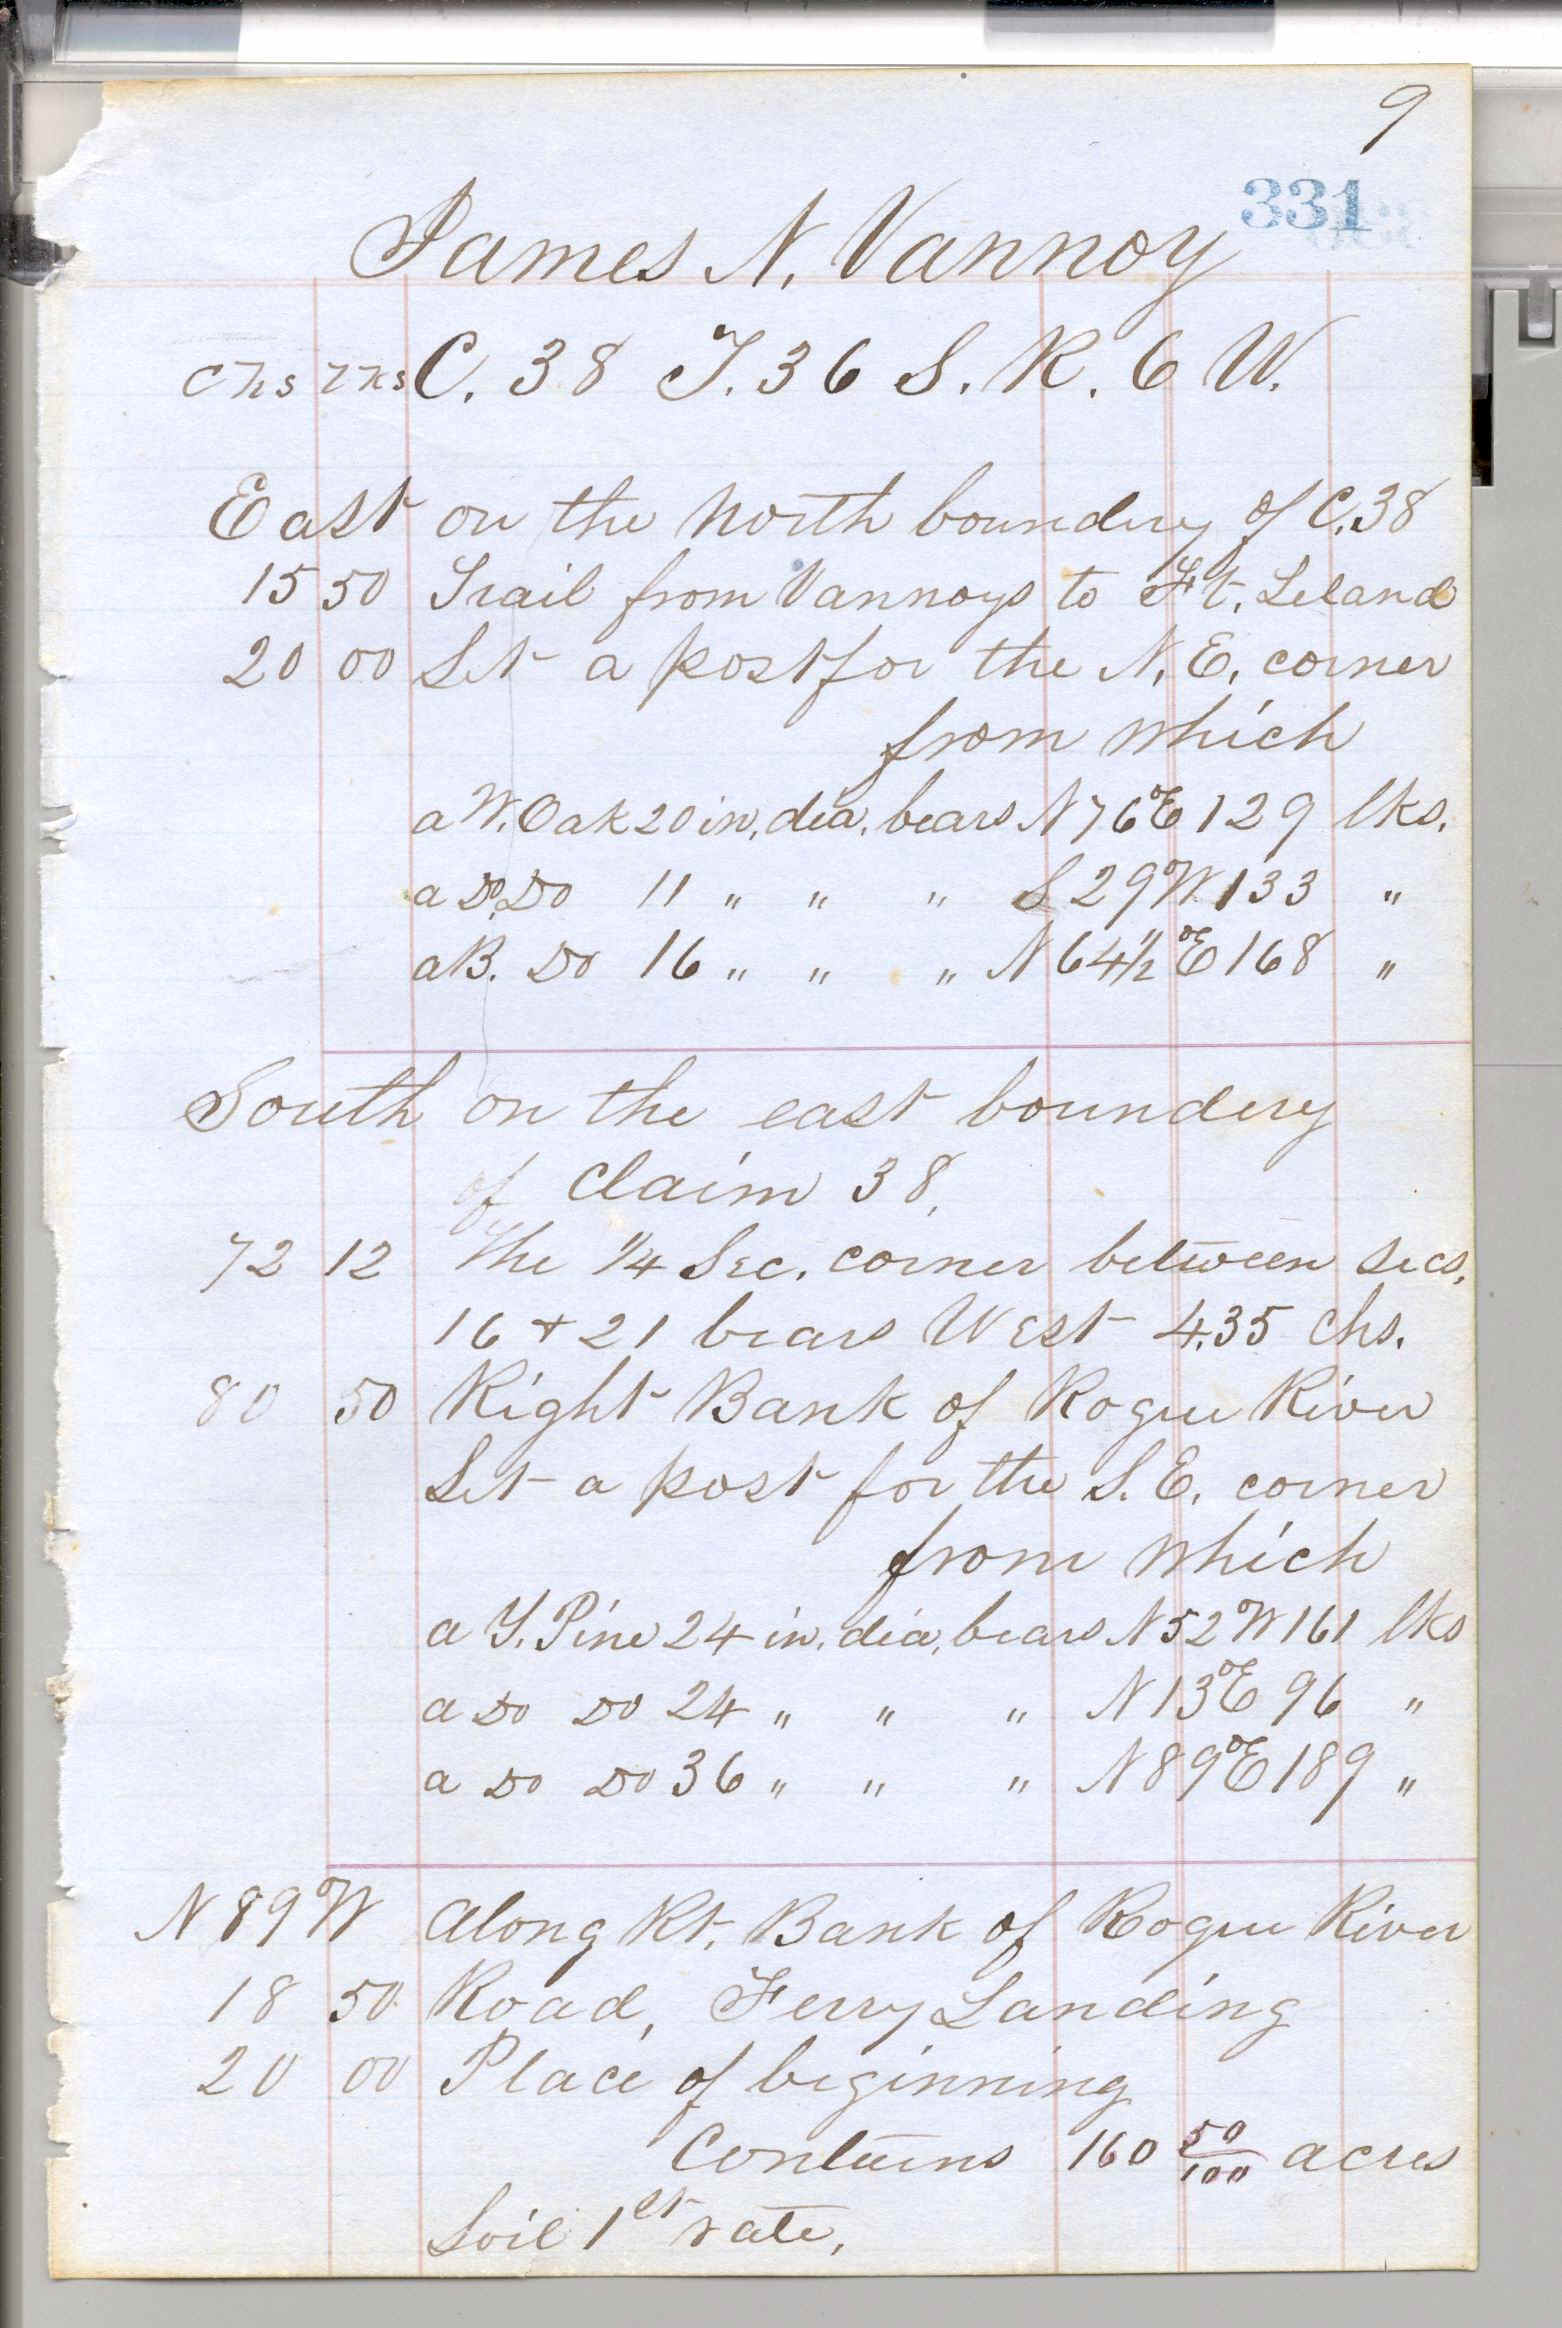 9
331
James N. Vannoy
Chs lks C. 38 T. 36 S. R. 6 W.
East on the North boundery of C. 38
15 50 Trail from Vannoys to Ft. Leland
20 00 Set a post for the N. E. corner
from which
a W. Oak 20 in. dia. bears N 76° E 129 lks.
a Do. Do 11 " " " S 29° W. 133 "
a B. Do 16 " " " N 64 1/2° E 168 "
South on the east boundery
of Claim 38,
72 12 The 1/4 Sec. corner between secs.
16 + 21 bears West 4.35 chs.
80 50 Right Bank of Rogue River
Set a post for the S. E. corner
from which
a Y. Pine 24 in. dia. bears N 52° W 161 lks
a Do Do 24 " " " N 13° E 96 "
a Do Do 36 " " " N 89° E 189 "
N 89° W Along Rt. Bank of Rogue River
18 50 Road, Ferry Landing
20 00 Place of beginning
Contains 160 50/100 acres
Soil 1st rate,